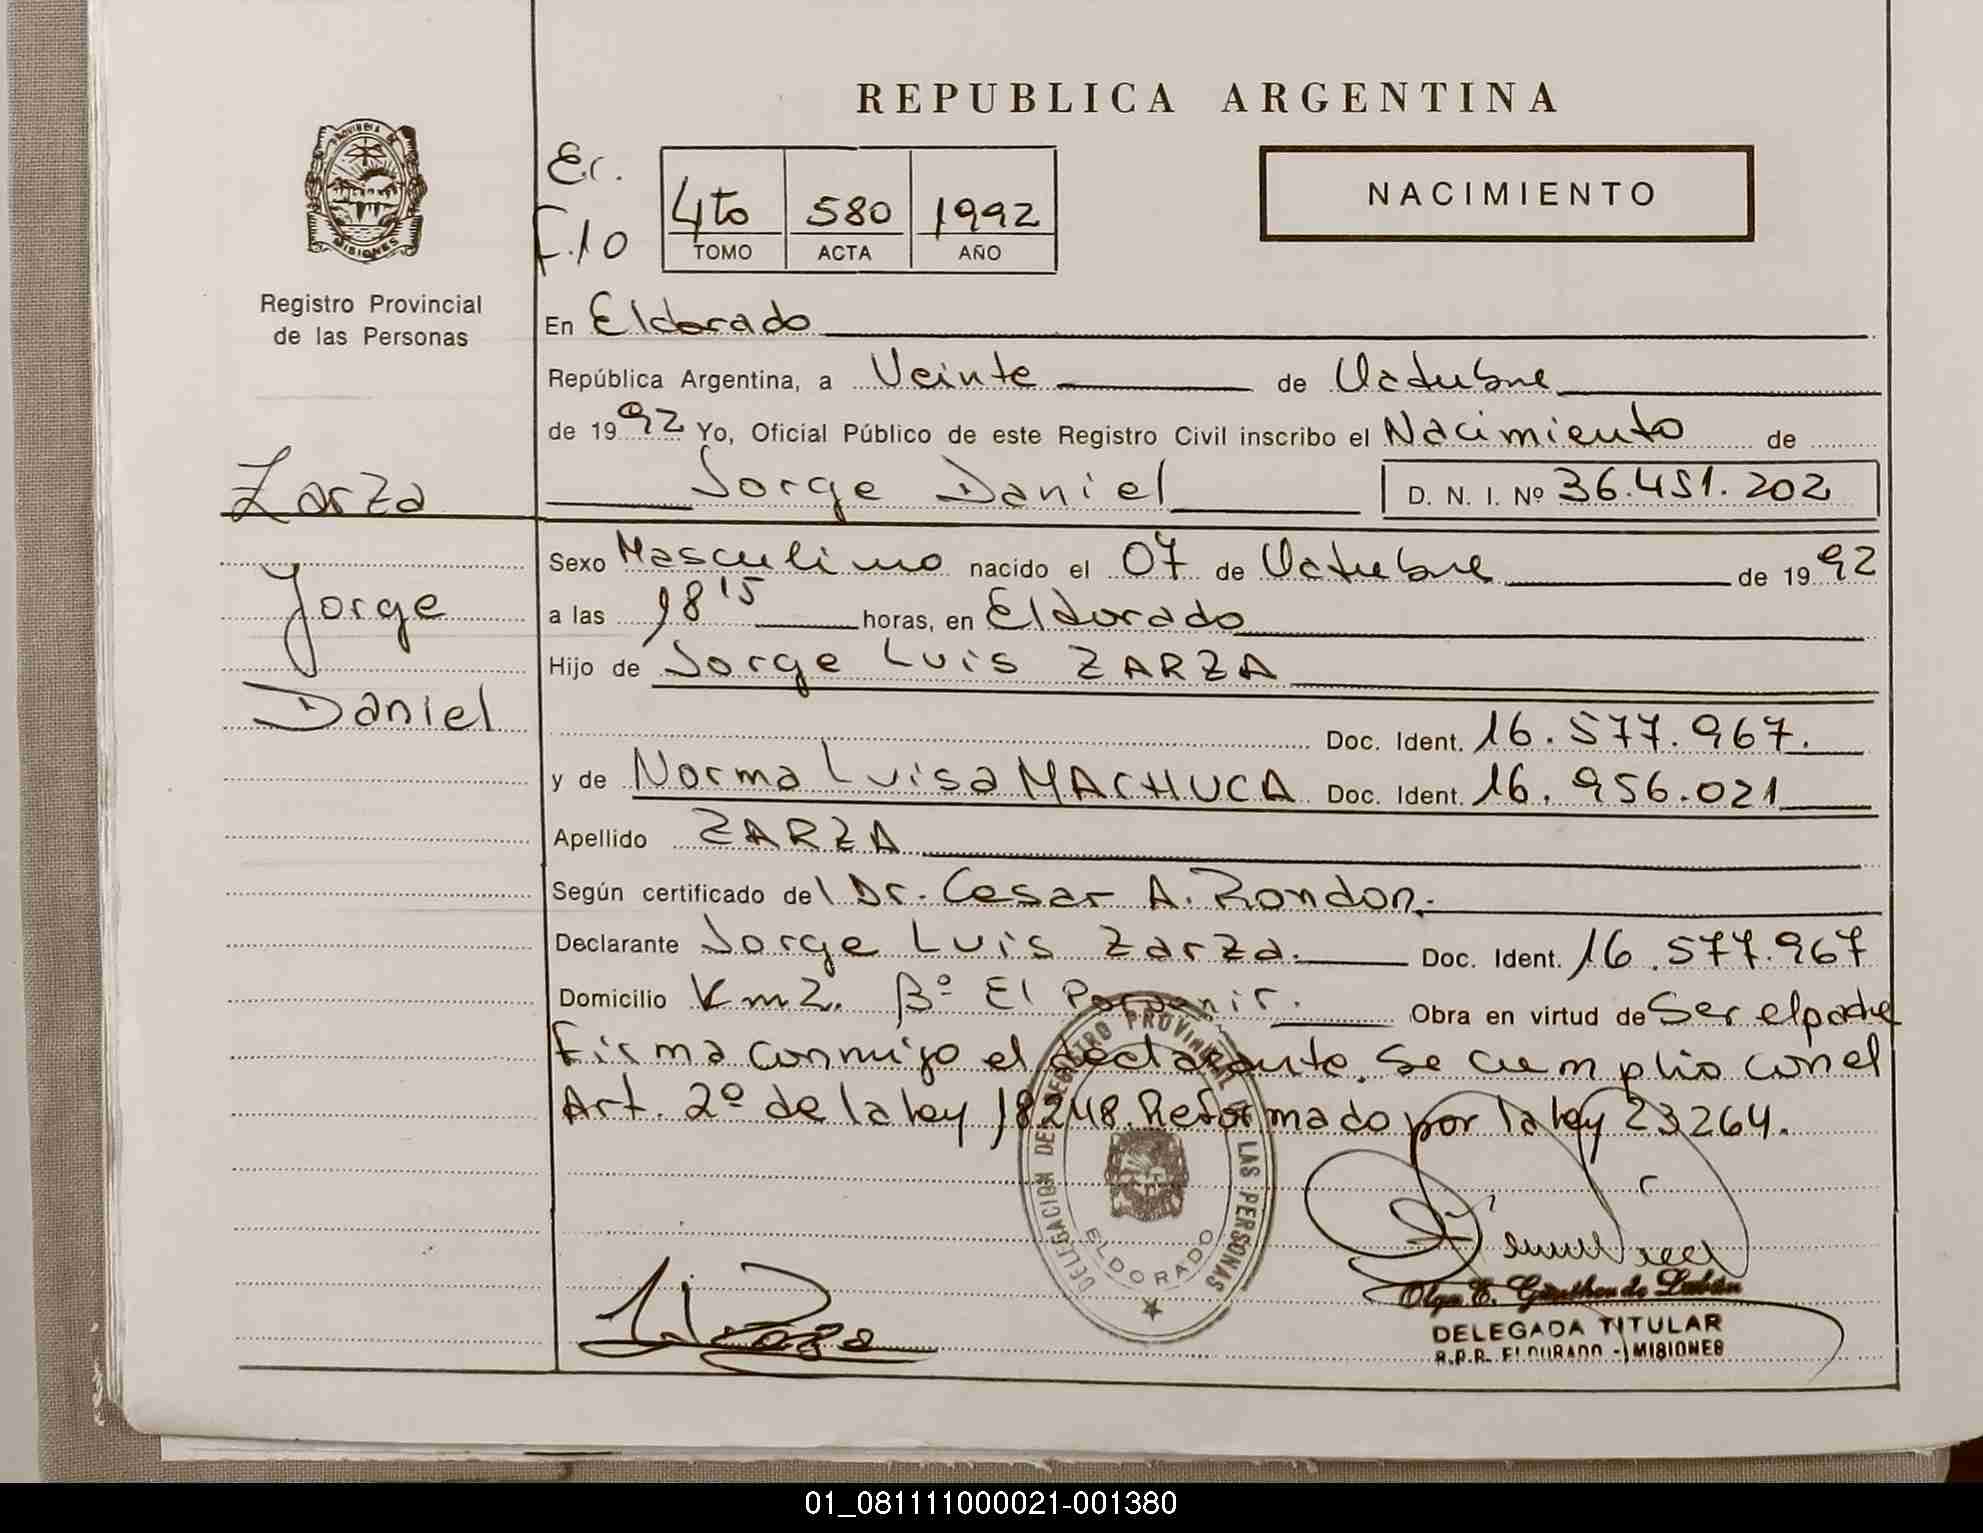 REPUBLICA ARGENTINA
PROVINCIA DE
MISIONES
Registro Provincial
de las Personas
F.10
4to 580 1992
TOMO ACTA AÑO
NACIMIENTO
En Eldorado
República Argentina, a Veinte de Octubre
de 1992 Yo, Oficial Público de este Registro Civil inscribo el Nacimiento de
Jorge Daniel D. N. I. Nº 36.451.202
Zarza
Jorge
Daniel
Sexo Masculino nacido el 07 de Octubre de 1992
a las 18 15 horas, en Eldorado
Hijo de Jorge Luis ZARZA
Doc. Ident. 16.577.967.
y de Norma Luisa MACHUCA Doc. Ident. 16.956.021
Apellido ZARZA
Según certificado del Dr. Cesar A. Rondon.
Declarante Jorge Luis Zarza. Doc. Ident. 16.577.967
Domicilio Km 2. Bº El Porvenir. Obra en virtud de Ser el padre
Firma conmigo el declarante. Se cumplio con el
Art. 2º de la ley 18248. Reformado por la ley 23264.
DELEGACION DEL REGISTRO PROVINCIAL DE LAS PERSONAS
ELDORADO
Olga E. Günther de
DELEGADA TITULAR
R.P.P. ELDORADO - MISIONES
01_081111000021-001380